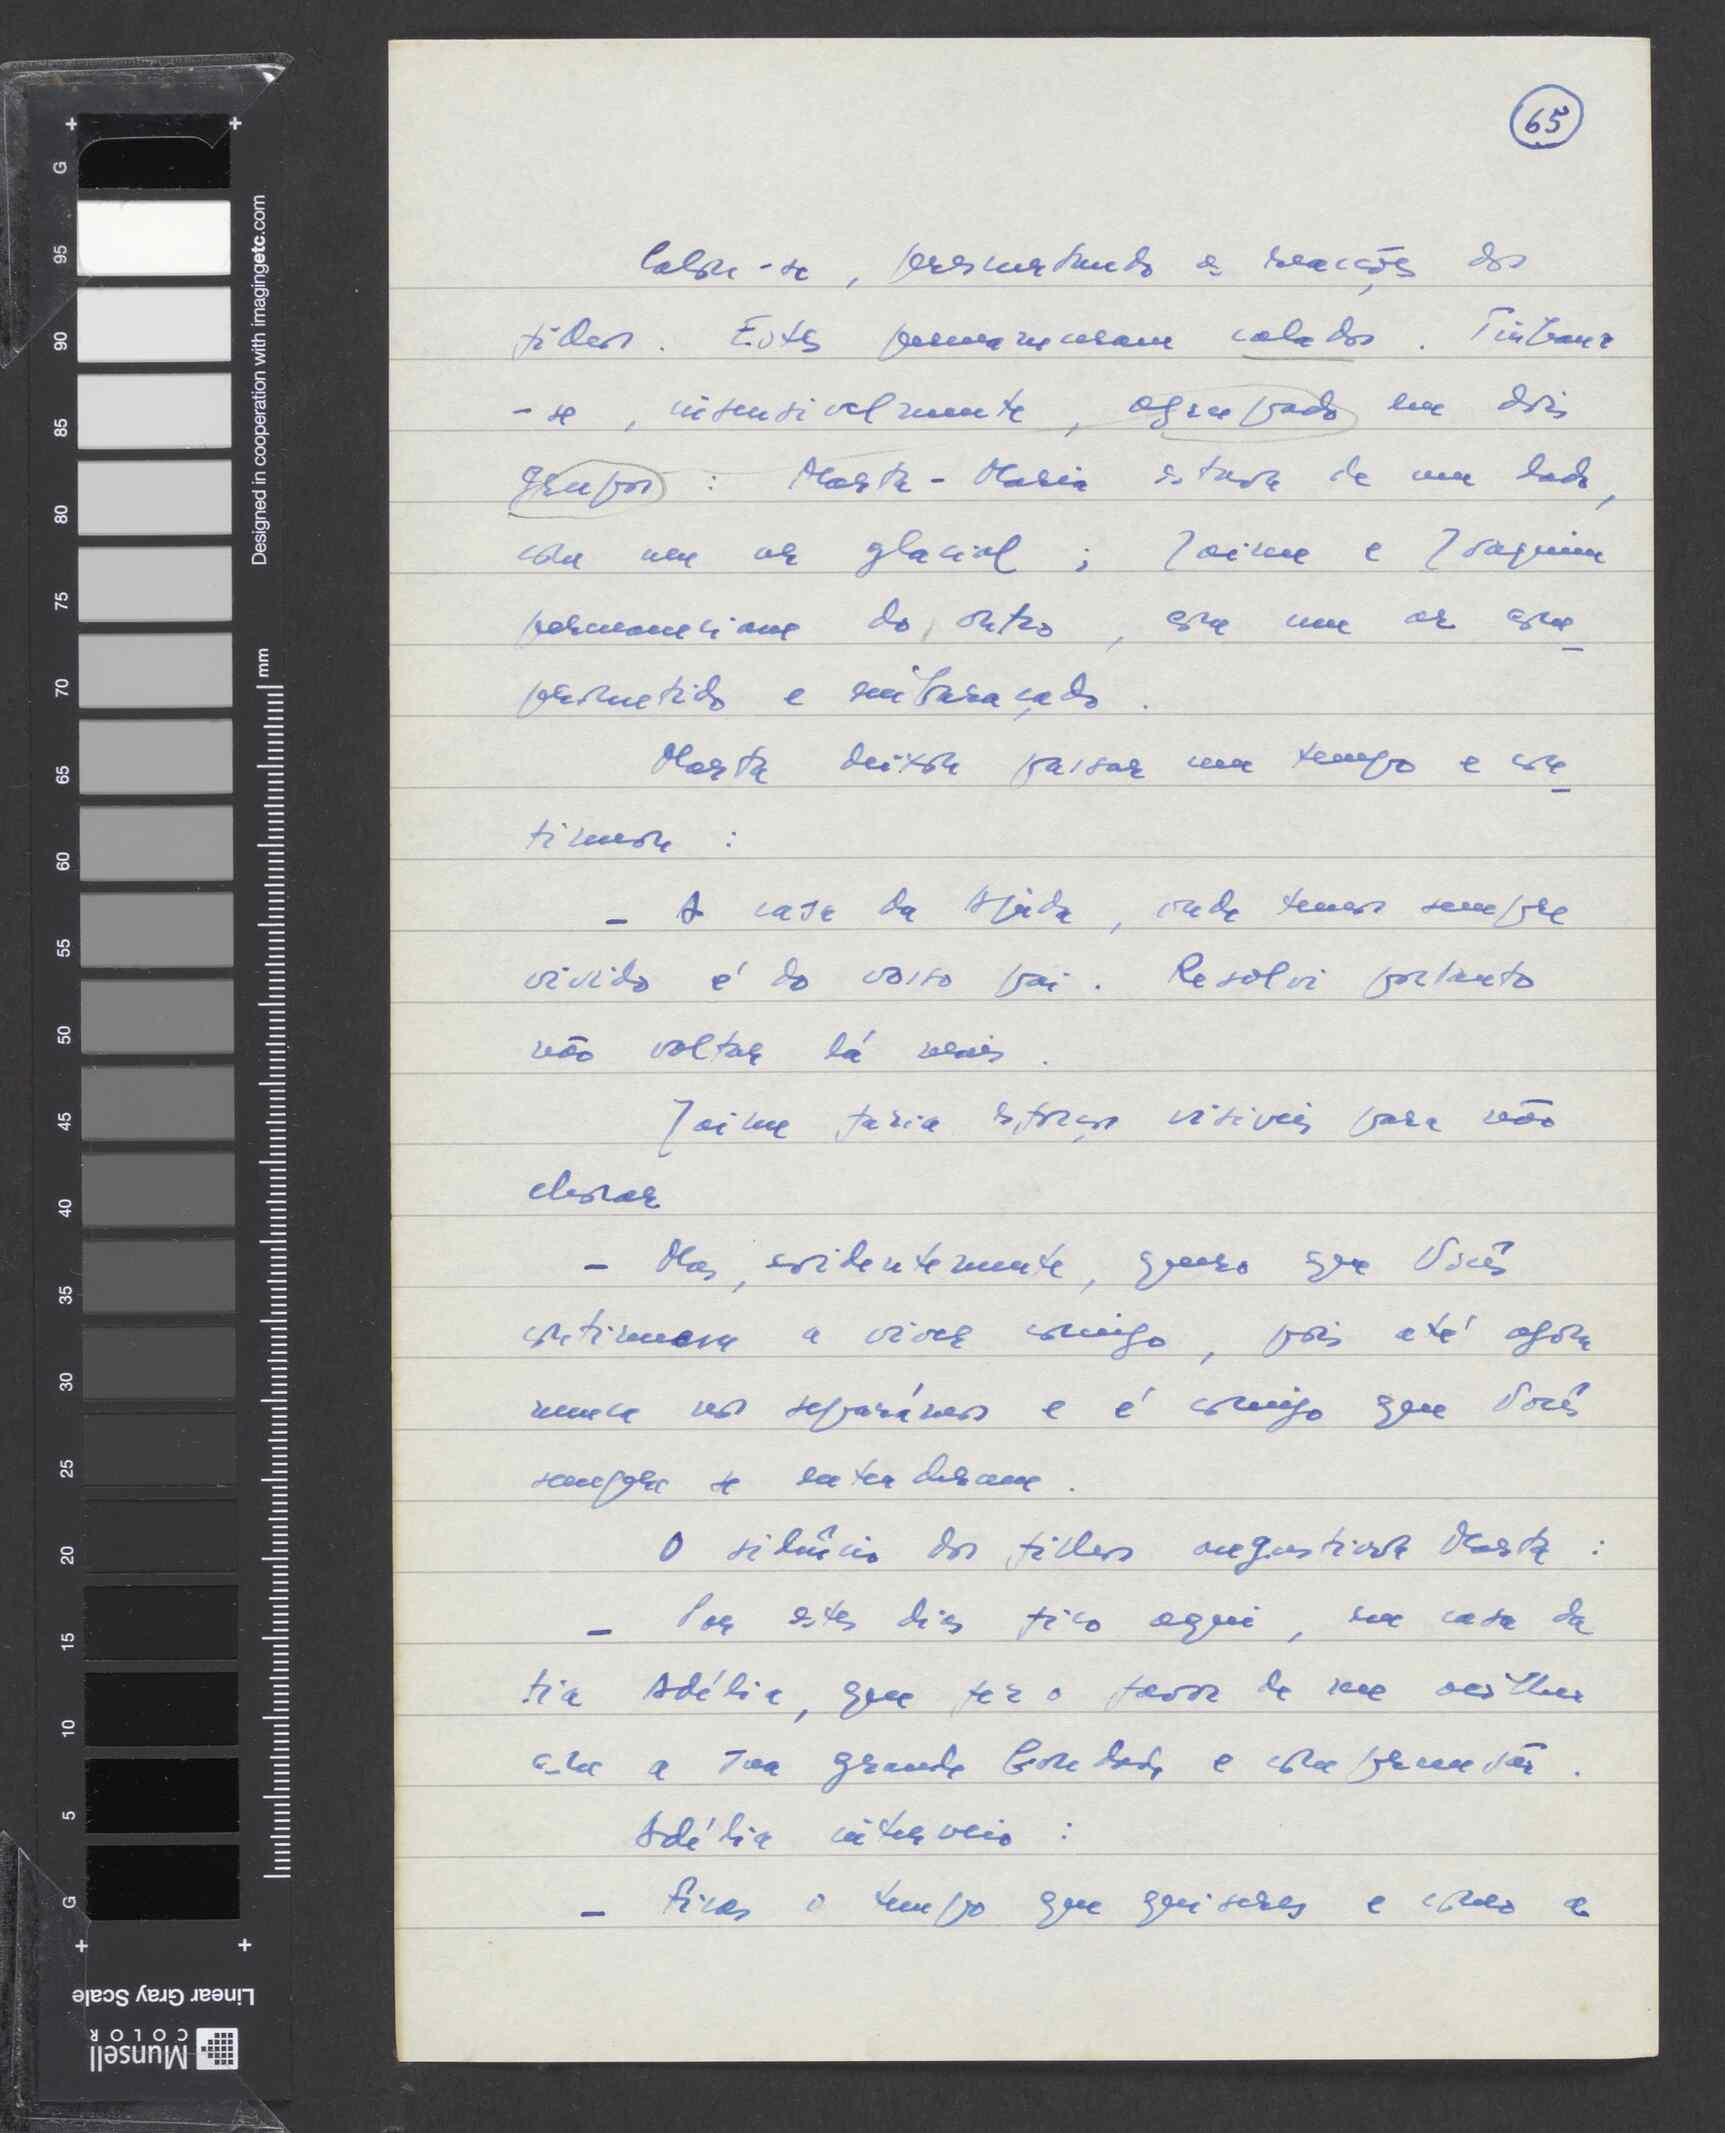 65
Calou-se, perscrutando as reacções dos
filhos. Estes permaneceram calados. Tinham-
-se, insensivelmente, agrupado em dois
grupos: Marta-Maria estava de um lado,
com um ar glacial; Jaime e Joaquim
permaneciam do outro, com um ar com
prometido e embaraçado.
Marta deixou passar um tempo e con
tinuou:
- A casa da Ajuda, onde temos sempre
vivido é do vosso pai. Resolvi portanto
não voltar lá mais.
Jaime fazia esforços visíveis para não
chorar
- Mas, evidentemente, quero que Vocês
continuem a viver comigo, pois até agora
nunca nos separámos e é comigo que Vocês
sempre se entenderam.
O silêncio dos filhos angustiava Marta:
- Por estes dias fico aqui, em casa da
tia Adélia, que fez o favor de me acolher
com a sua grande bondade e compreensão.
Adélia interveio:
- Ficas o tempo que quiseres e como a
G 95 90 85 80 75 70 65 60 55 50 45 40 35 30 25 20 15 10 5 G
Designed in cooperation with imagingetc.com
mm
Linear Gray Scale
Munsell
COLOR